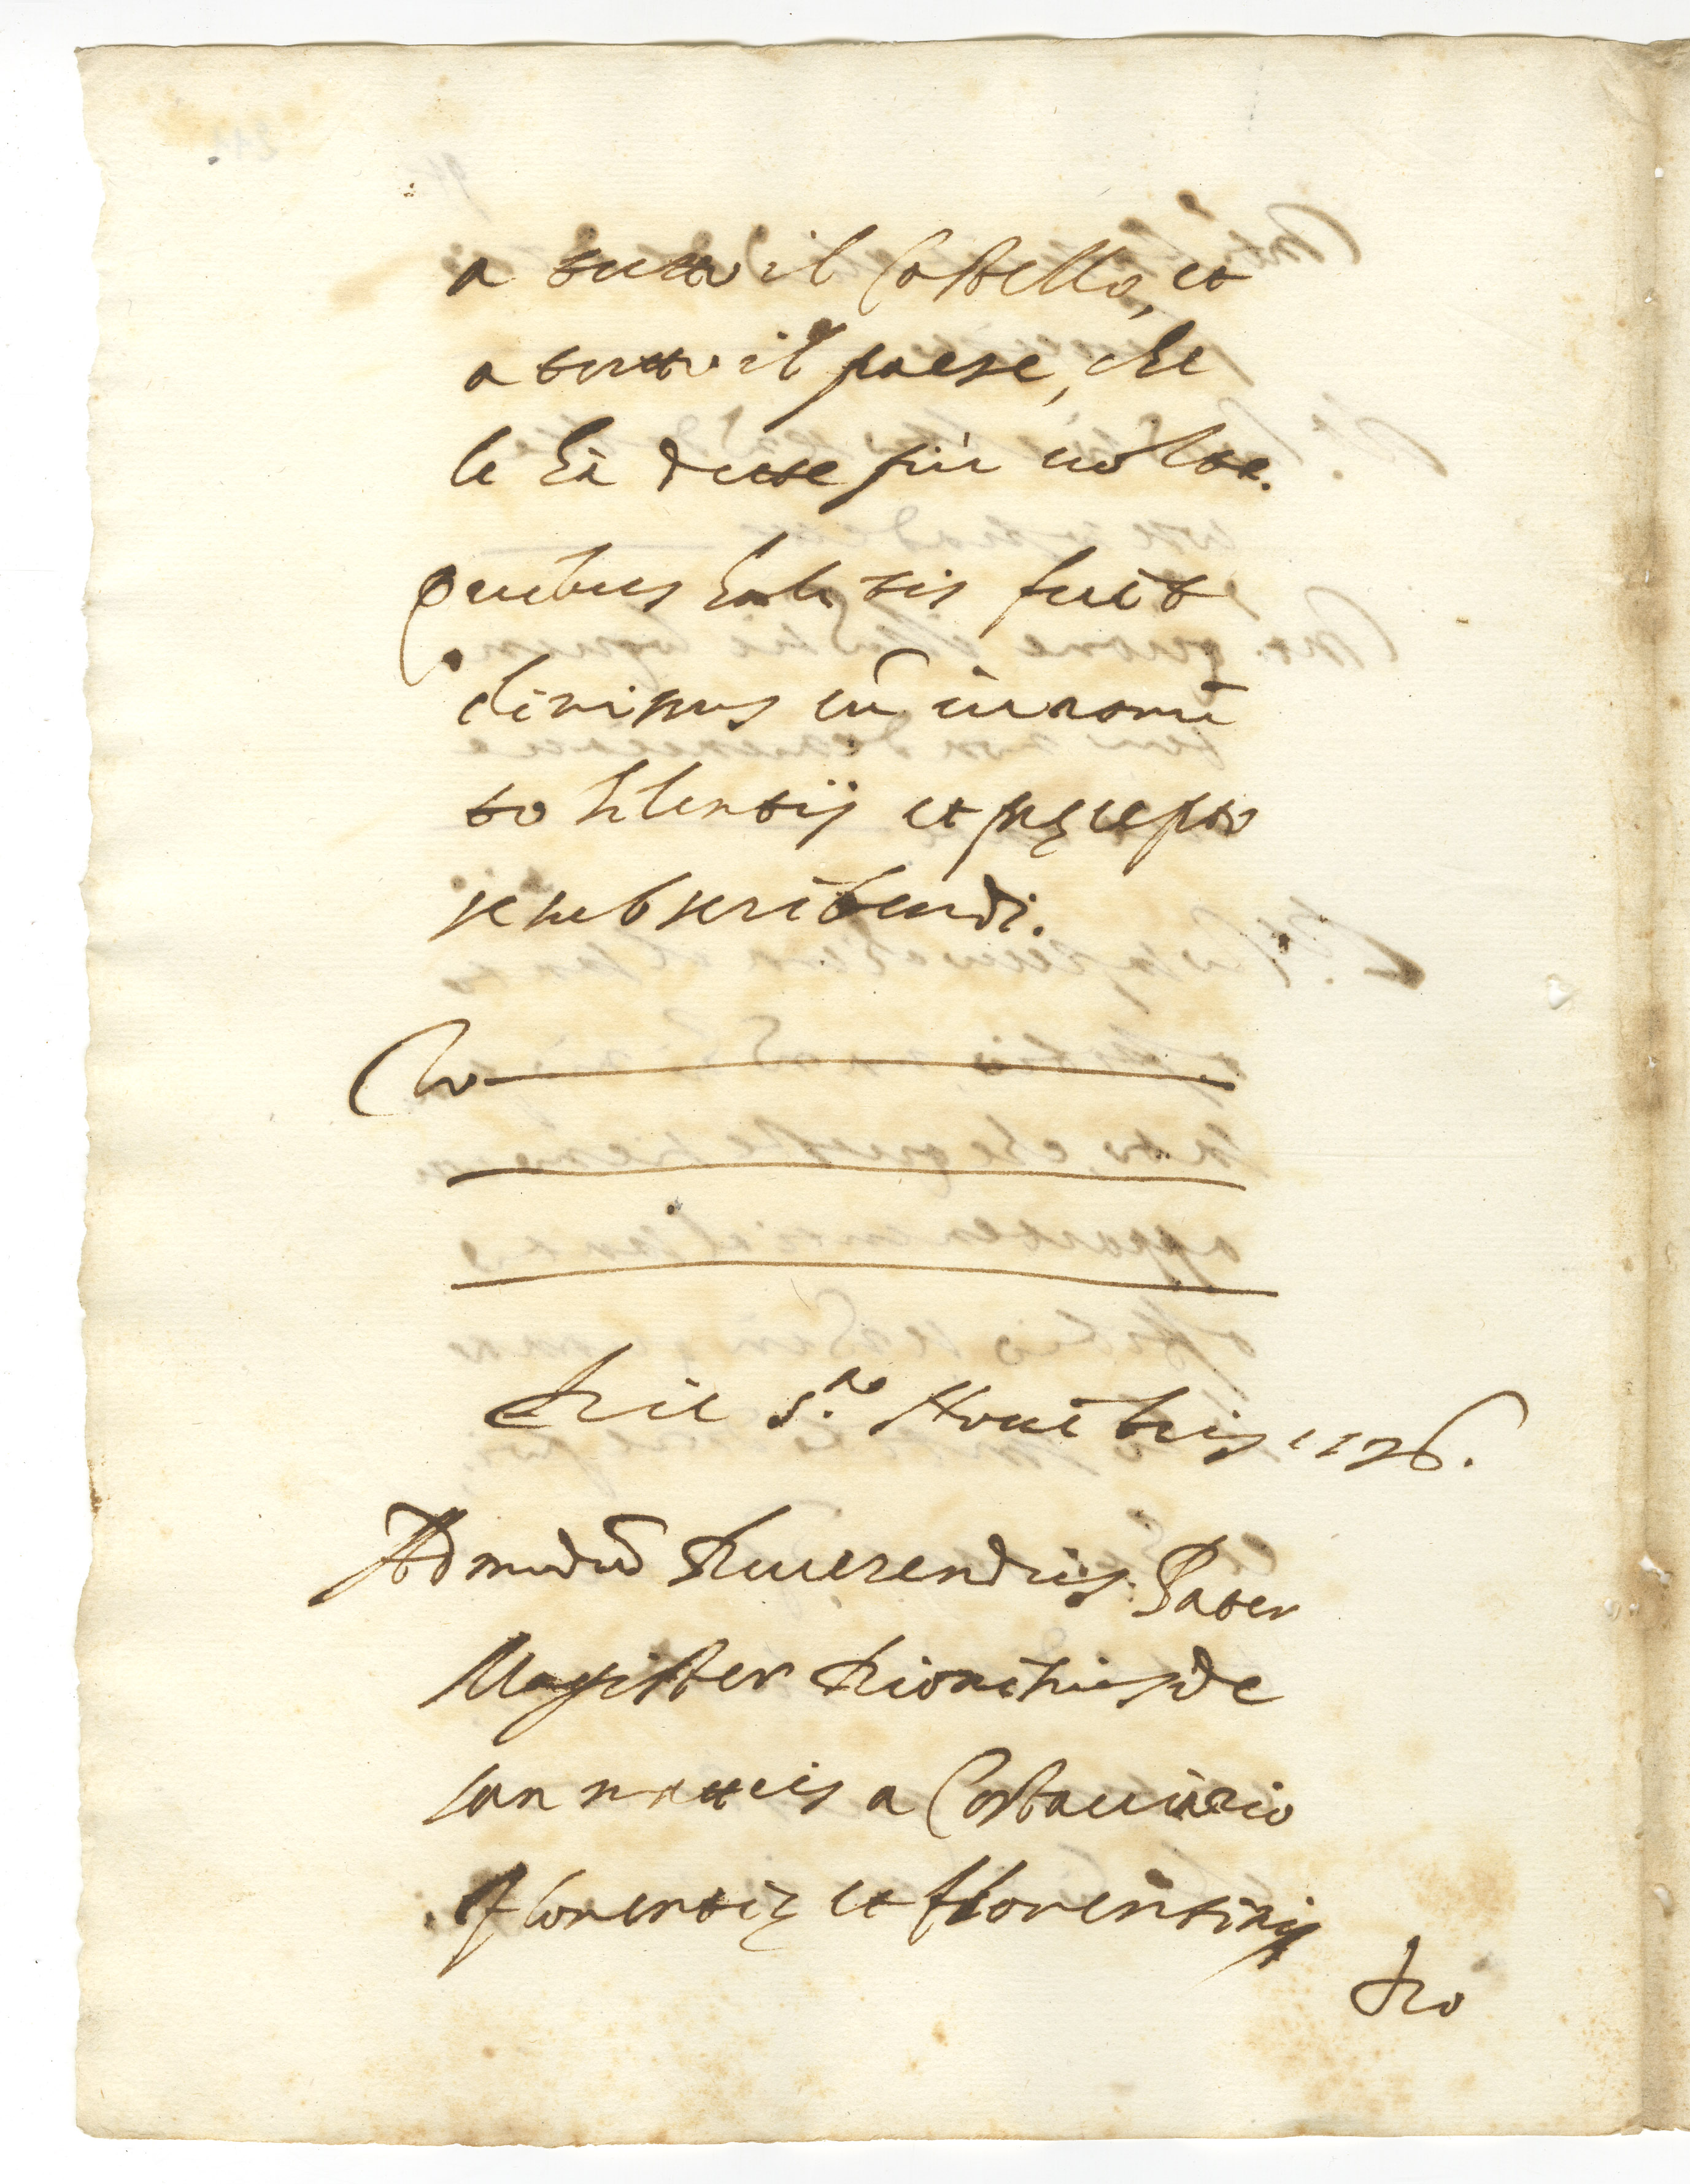 a tutto il Castello, et
a tutto il paese, che
le hà dette più uolte.
Quibus habitis fuit
dimissus cū iuramē
to silentij et pręcepto
se subscribendi.
Io
Die 5.ª Nouēbris 1576.
Admodū Reuerendus Pater
Magister Dionisius de
sannatiis a Costacciario
Florentię et florentinij
Do